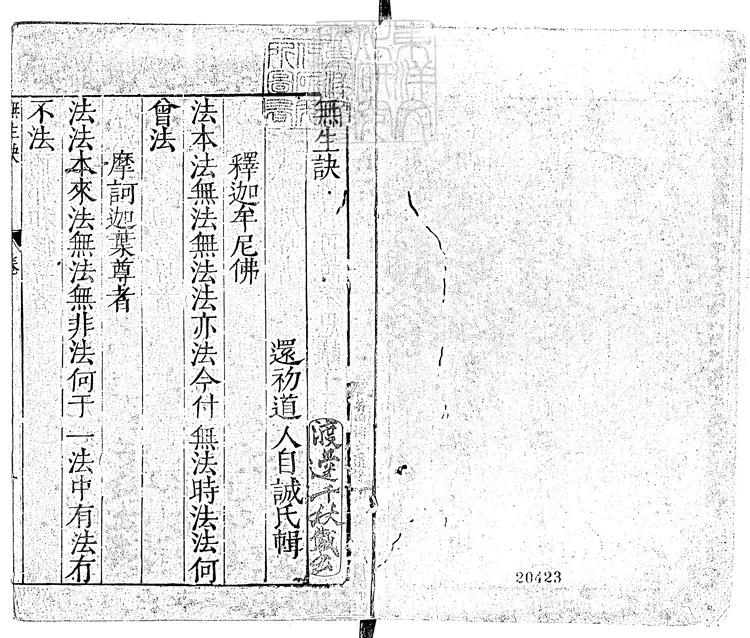 20423
無生訣
渡邊千秋藏書
還初道人自誠氏輯
釋迦牟尼佛
法本法無法無法法亦法今付無法時法法何
曾法
摩訶迦葉尊者
法法本來法無法無非法何于一法中有法冇
不法
無生訣
卷